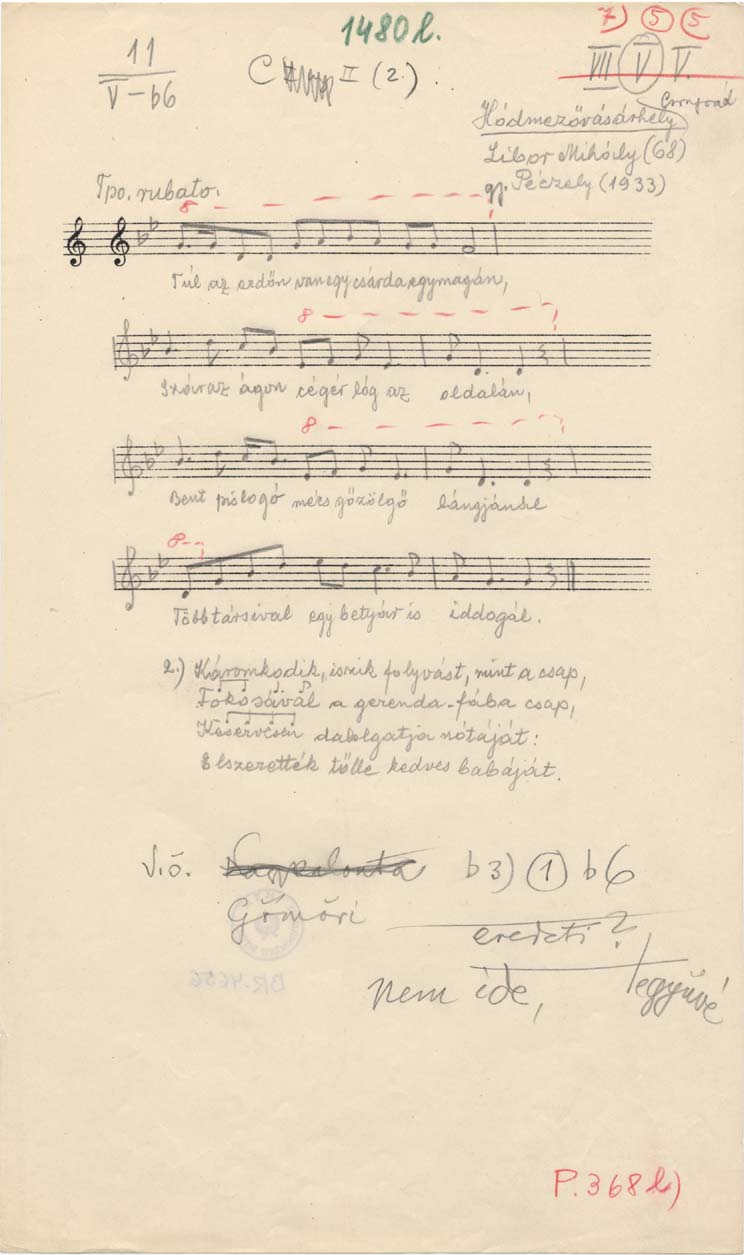 1480 l.
7) 5 5
11
V - b6
C II (2.)
VII V V.
Csongrád
Hódmezővásárhely
Libor Mihály (68)
gy. Péczely (1933)
Tpo. rubato.
8
Túl az erdőn van egy csárda egymagán,
8
Száraz ágon cégér lóg az oldalán,
8
Bent pislogó mécs gőzölgő lángjánál
8
Többtársával egy betyár is iddogál.
2.) Káromkodik, iszik folyvást, mint a csap,
Fokosával a gerenda-fába csap,
Keservesen dalolgatja nótáját:
Elszerették tőlle kedves babáját.
V.ö. b3) 1 b6
Gömöri
eredeti?
nem ide,
BR-4656
P. 368 l)